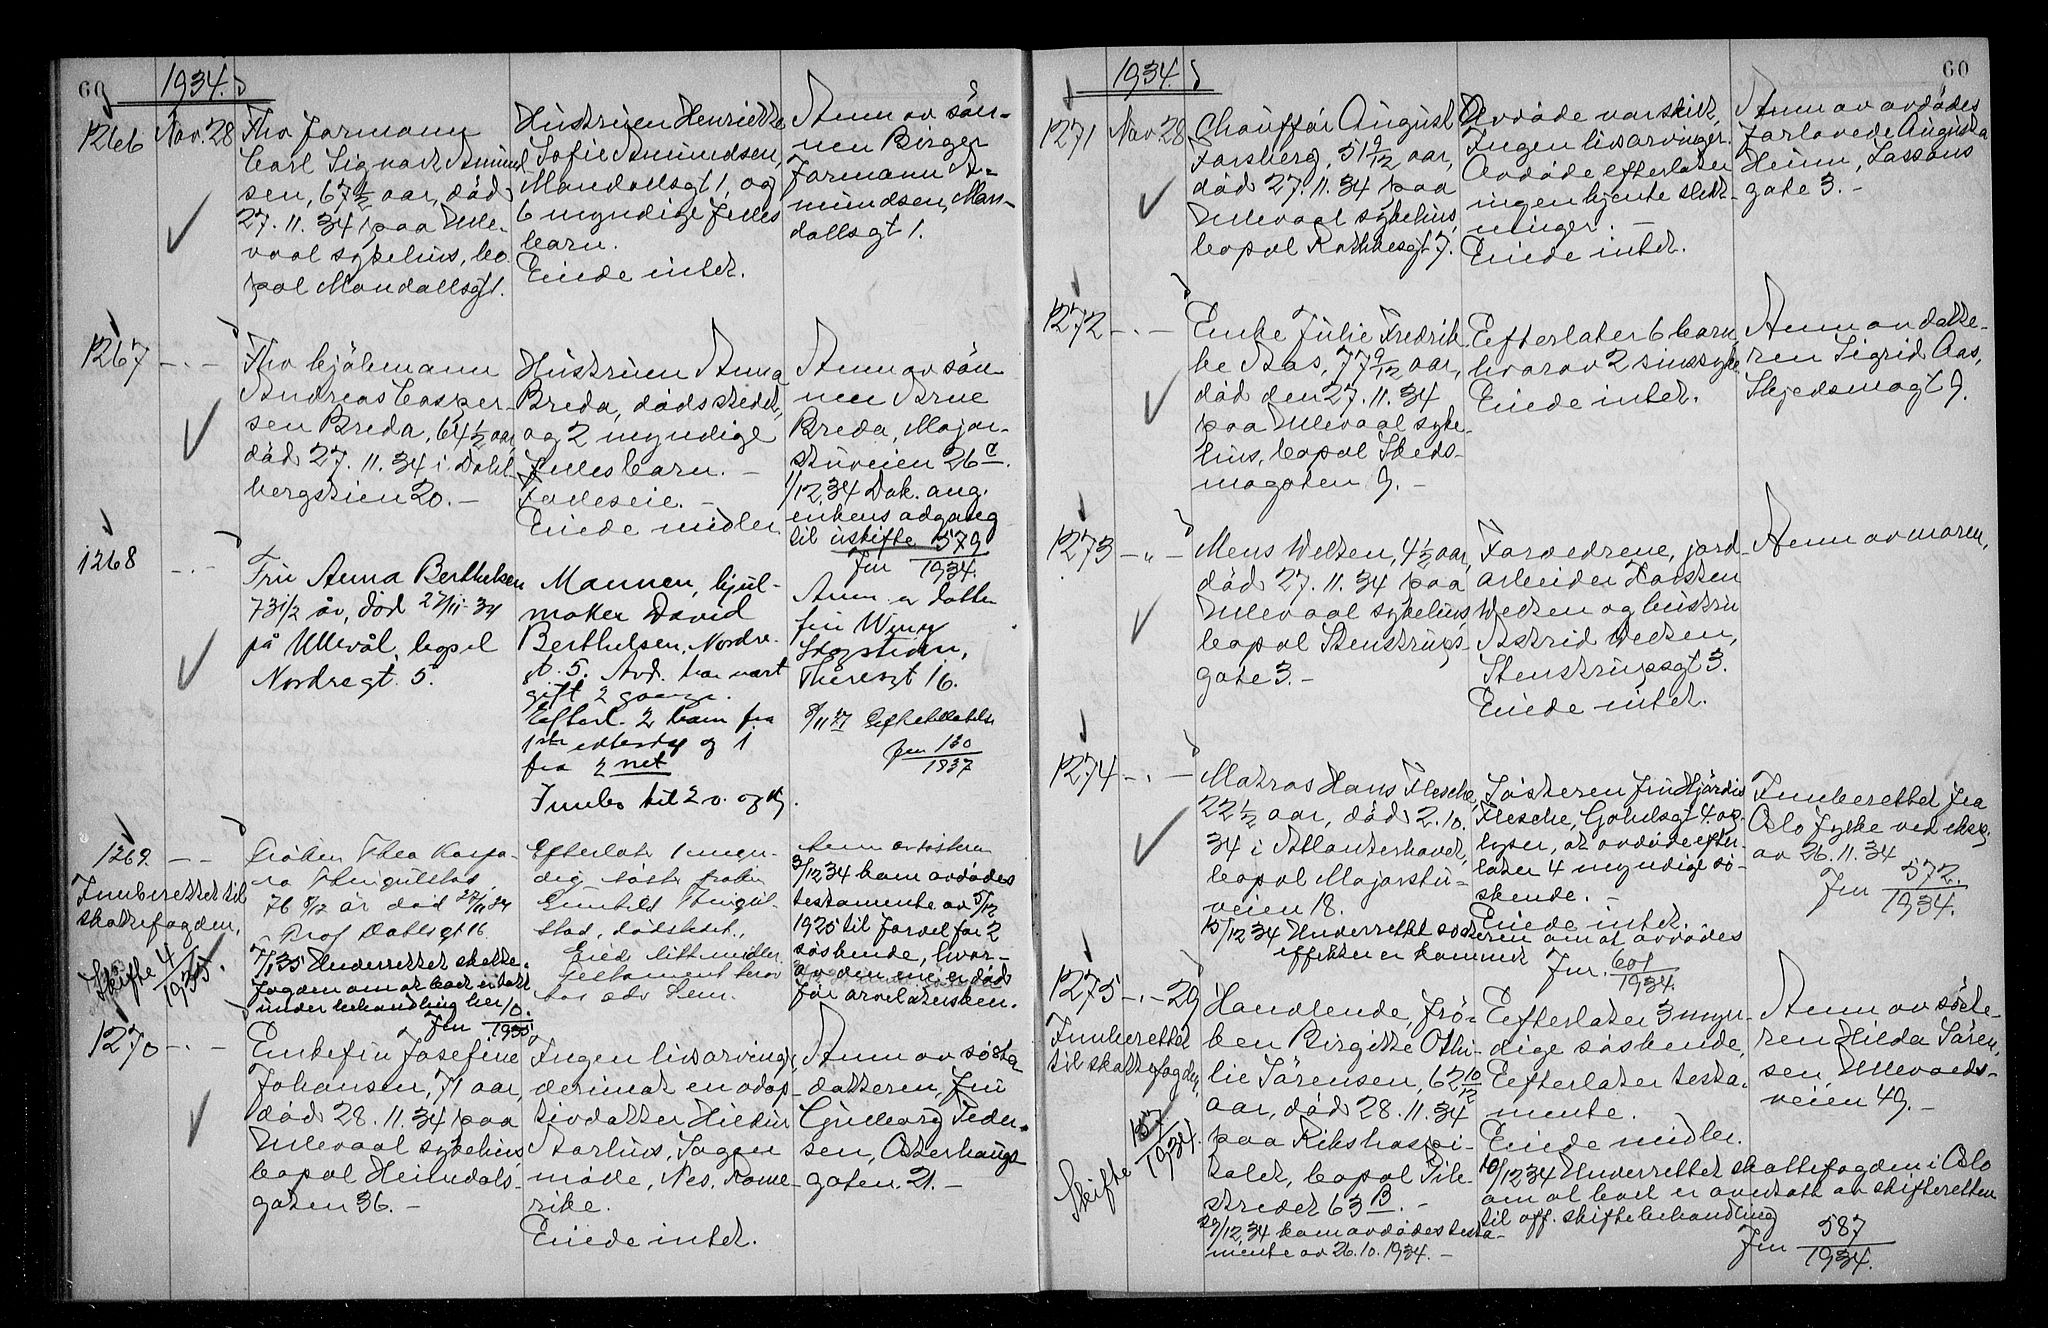 60
1934.
1266
Nov. 28
Fhv formann
Carl Sigvart Amund
sen, 67 1/2 aar, död
27. 11. 34 paa Ulle-
vaal sykehus, bo-
pæl Mandallsgt 1.
Hustruen Henriette
Sofie Amundsen,
Mandallsgt 1, og
6 myndige felles
barn.
Eiede intet.
Anm av sön-
nen Birger
Formann A-
mundsen, Man-
dallsgt 1.
1267 - . -
Fhv kjölemann
Andreas Casper-
sen Breda, 64 1/2 aar
död 27. 11. 34 i Dahl
bergstien 20. -
Hustruen Anna
Breda, dödsstedet,
og 2 myndige
felles barn. -
Felleseie. -
Eiede midler
Anm av sön
nen Arne
Breda, Major-
stuveien 26 c.
1/12.34 Dok. ang.
enkens adgang
til uskifte 579
Jnr 1934.
1268 - . -
Fru Anna Berthelsen
73 1/2 år, död 27/11-34
på Ullevål, bopel
Nordregt. 5.
Mannen, hjul-
maker David
Berthelsen, Nordre-
gt. 5. Avd. har vært
gift 2 gange.
Efterl. 2 barn fra
1ste ekteskap og 1
fra 2 net
Innb. til 2 o. og
Anm er datter
fru Winy
Theresgt 16.
8/11 37
Jnr 130
1937
1269. - -
Innberettet til
skattefogden,
Skifte 4/1935.
Fröken Thea Kaspa-
ra Thingulstad,
76 8/12 år död 27/11 34
Prof Dahlsgt 16
7/1 35 Underrettet skatte-
fogden om at boet er tatt
under behandling her
Jnr 10.
1935
Efterlater 1 myn-
dig söster fröken
Gunhild Thingul-
stad, dödsstedet.,
Eied litt midler
Testament beror
hos adv
Anm av söstren
3/12 34 kom avdödes
testamente av 5/12
1925 til fordel for 2
söskende, hvor-
av den ene er död
för arvelatersken.
1270 - . -
Enkefru Josefine
Johansen, 71 aar,
död 28. 11. 34 paa
Ullevaal sykehus,
bopæl Heimdals-
gaten 36. -
Ingen livsarving,
derimot en adop
tivdatter Hildur
Aarhus, Sagen
möde, Nes. Rome-
rike.
Eiede intet.
Anm av söster
datteren, fru
Gudborg Peder-
sen, Osterhaugs-
gaten 21. -
60
1934.
1271
Nov 28
Chaufför August
Forsberg, 51 9/12 aar,
död 27. 11. 34 paa
Ullevaal sykehus,
bopæl Rathkesgt 7.
Avdöde var skilt,
Ingen livsarvinger.
Avdöde efterlater
ingen kjente slekt-
ninger. -
Eiede intet.
Anm av avdödes
forlovede Augusta
Heim, Lassons
gate 3. -
1272 - . -
Enke Julie Fredrik-
ke Aas, 77 9/12 aar,
död den 27. 11. 34
paa Ullevaal syke-
hus, bopæl Skeds-
mogaten 9. -
Efterlater 6 barn,
hvorav 2 sinssyke
Eiede intet.
Anm av datte-
ren Sigrid Aas,
Skjedsmogt 9.
1273 - " -
Mens Welsen, 4 1/2 aar,
död 27. 11. 34 paa
Ullevaal sykehus,
bopæl Stenstrups-
gate 3. -
Foreldrene, jord-
arbeider Karsten
Welsen og hustru
Astrid Welsen,
Stenstrupsgt 3.
Eiede intet.
Anm av moren,
1274 - . -
Matros Hans Flesche,
22 1/2 aar, död 2. 10.
34 i Atlanterhavet,
bopæl Majorstu-
veien 18.
15/12 34 Underrettet sösteren om at avdödes
effekter er kommet
Jnr. 601
1934.
Sösteren fru Hjördis
Flesche, Gabelsgt 4. op-
lyser, at avdöde efter-
later 4 myndige sö-
skende. -
Eiede intet.
Innberettet fra
Oslo fylke ved eksp.
av 26. 11. 34
Jnr 572.
1934.
1275 - . - 29
Innberettet
til skattefogden
Skifte 157/1934.
Handlende, frö-
ken Birgitte Othi-
lie Sörensen, 62 10/12
aar, död 28. 11. 34
paa Rikshospi-
talet, bopæl Pile-
stredet 63 B. -
29/12.34 kom avdödes testa-
mente av 26. 10. 1934. -
Efterlater 3 myn-
dige söskende,
Efterlater testa-
mente.
Eiede midler.
10/12 34 Underrettet skattefogden i Oslo
om at boet er overtatt av skifteretten
til off. skiftebehandling
Jnr 587
1934.
Anm av söste-
ren Hilda Sören-
sen, Ullevaals-
veien 49. -